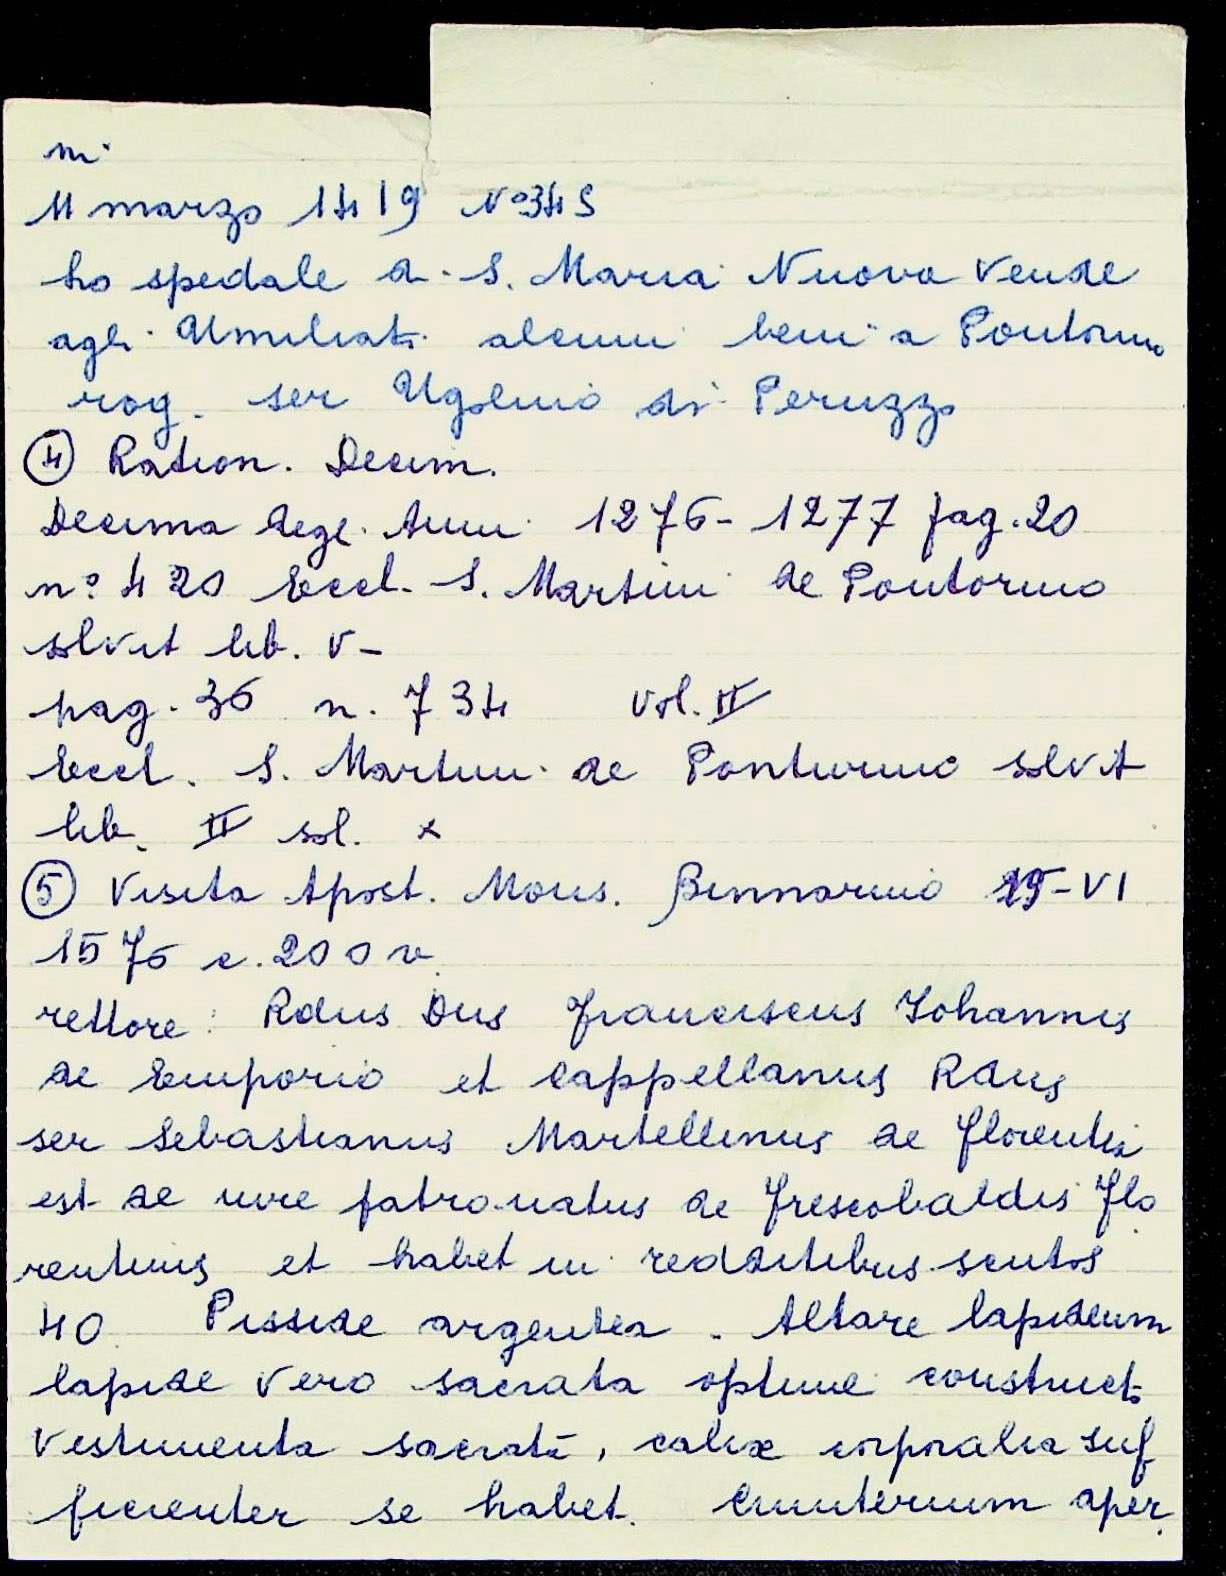 ni
11 marzo 1419 No 345
Lo spedale di S. Maria Nuova vende
agli Umiliati alcuni beni a Pontormo
rog. ser Ugolino di Peruzzo
④ Ration. Decim.
Decima dege. Anni 1276-1277 pag. 20
n° 420 Eccl. S. Martini de Pontormo
solvit lib. V-
pag. 36 n. 734 Vol. II
Eccl. S. Martini de Ponturmo solvit
lib. II sol. x
⑤ Visita Apost. Mons. Binnarino 19-VI
1576 c. 200 v
rettore: Rdus Dus Franciscus Johannis
de Emporio et cappellanus Rdus
ser Sebastianus Martellinus de Florentia
est de iure patronatus de Frescobaldis Flo
rentinis et habet in redditibus scutos
40 Pisside argentea. Altare lapideum
lapide vero sacrata optime constructo
Vestimenta sacrata, calix corporalia suf
ficienter se habet. Cimiterium aper